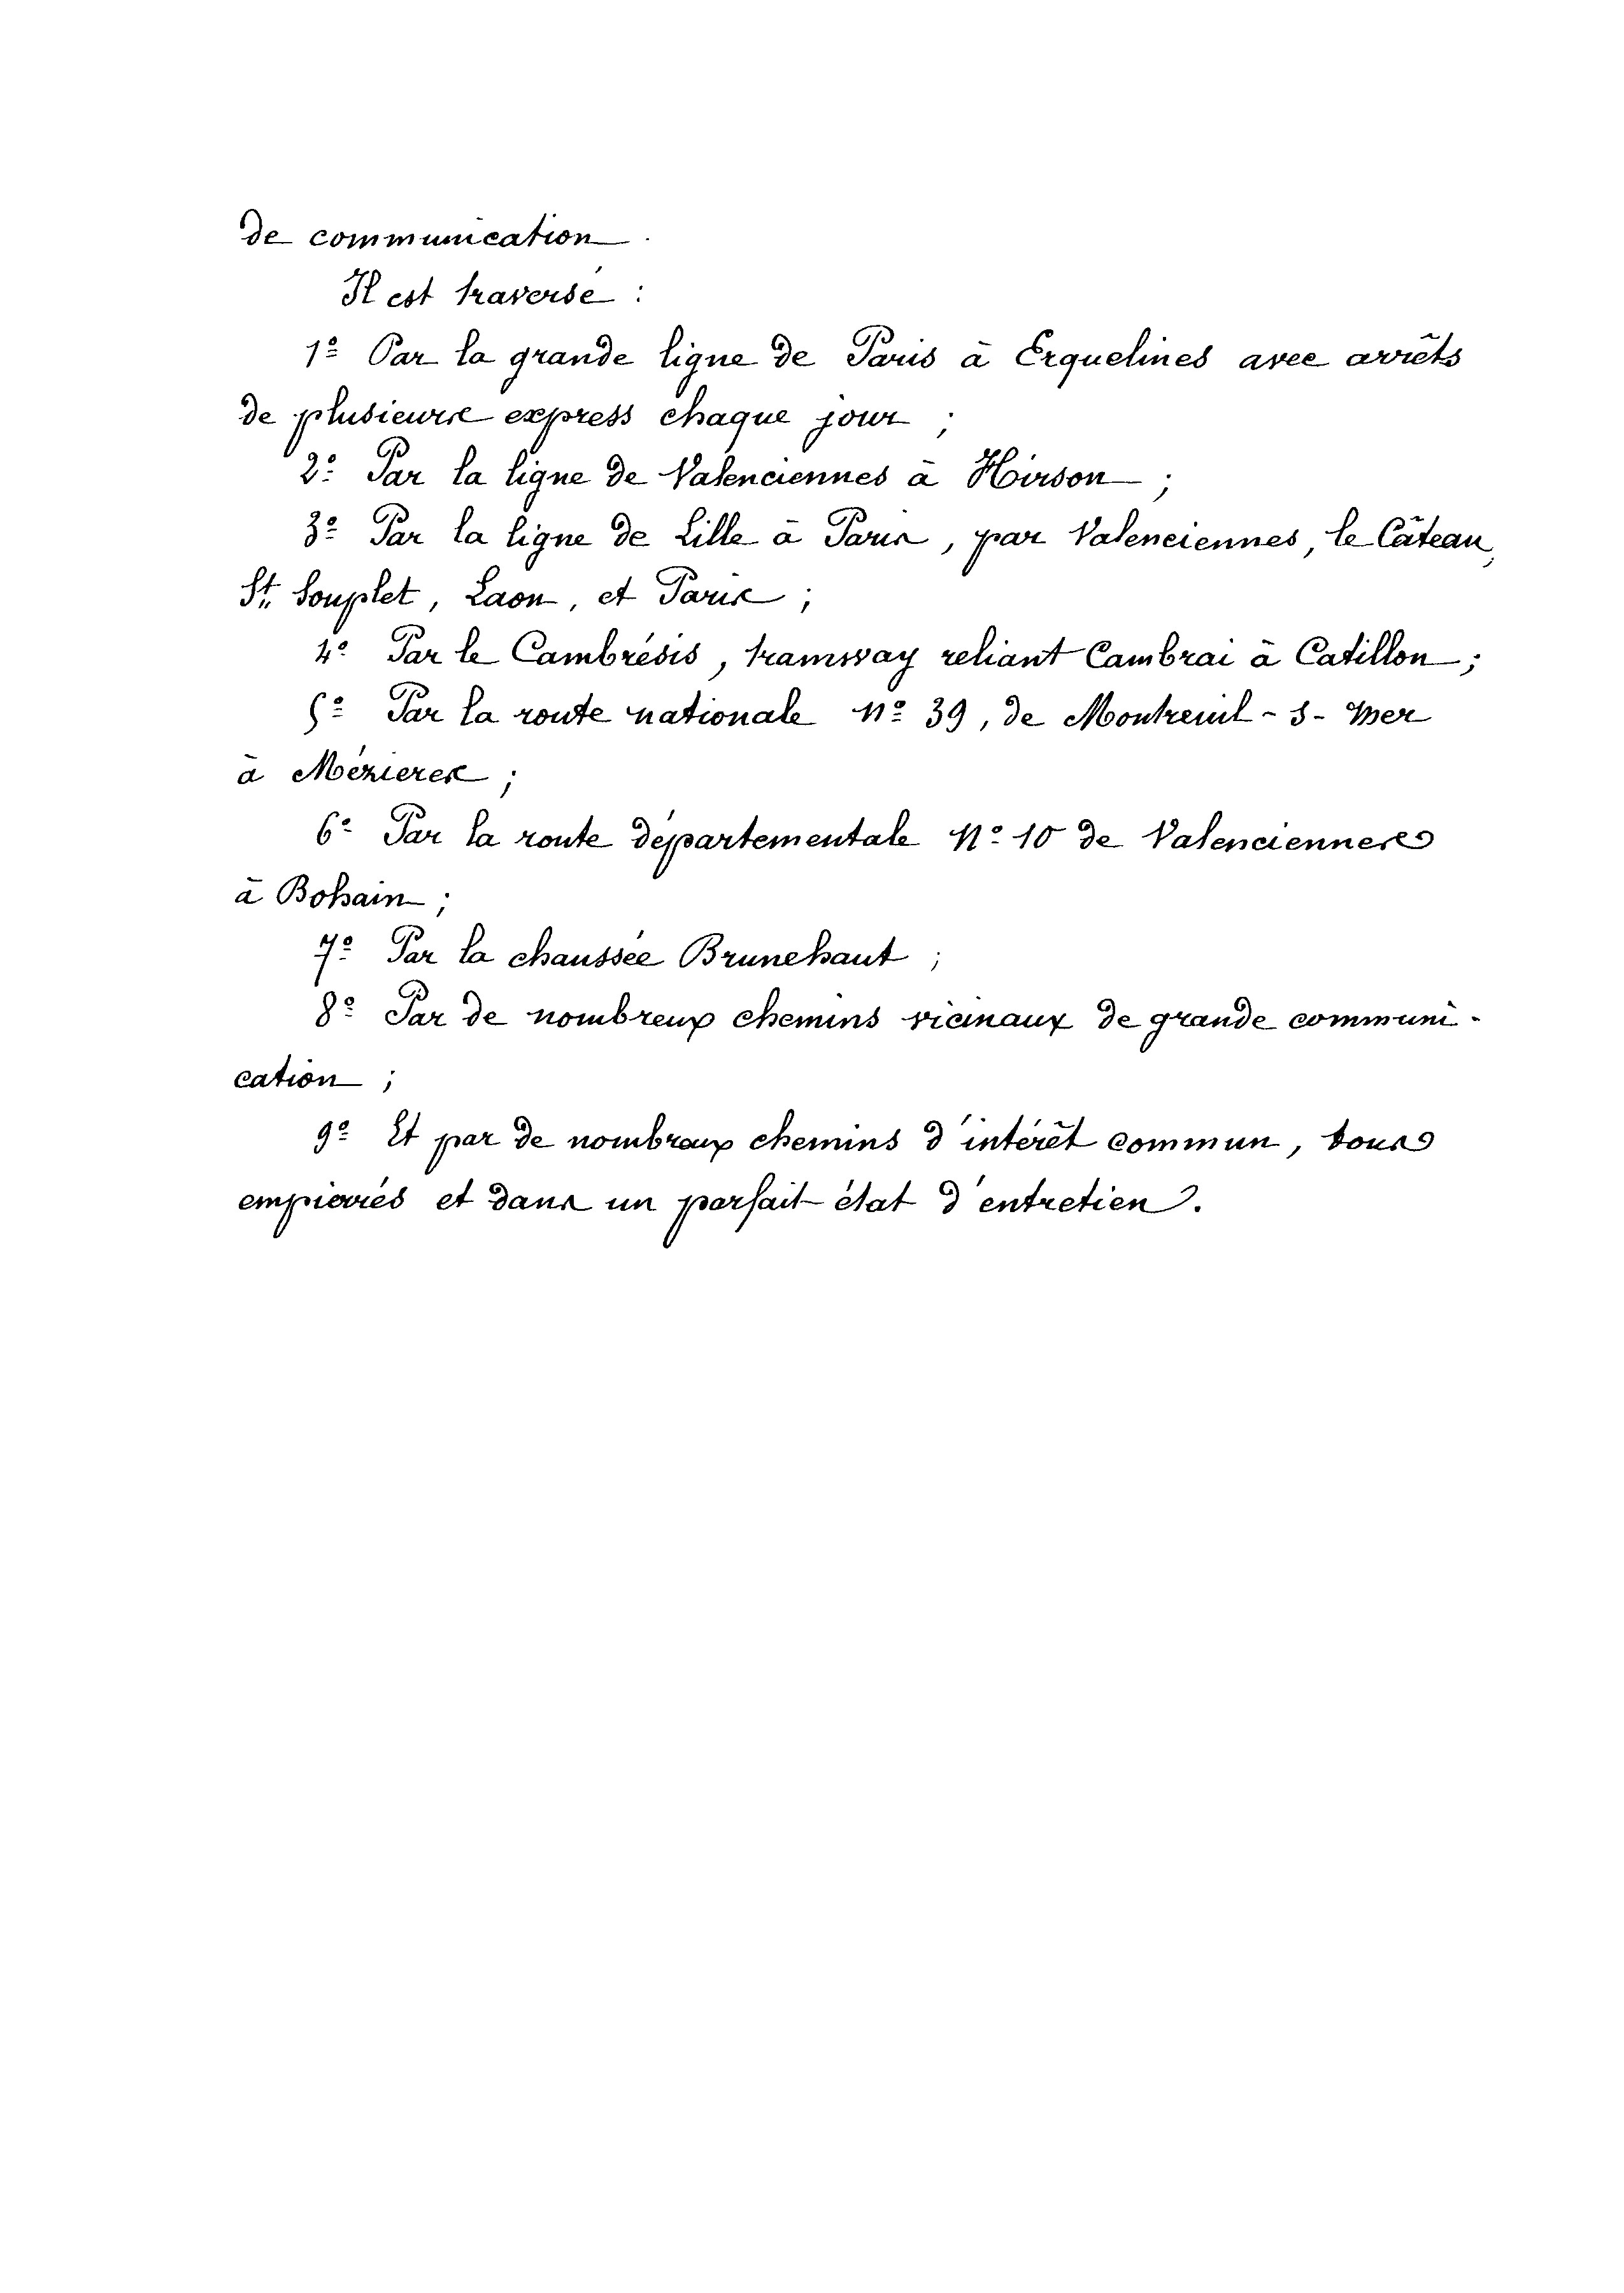 de communication.
Il est traversé :
1º Par la grande ligne de Paris à Erquelines avec arrêts
de plusieurs express chaque jour ;
2º Par la ligne de Valenciennes à Hirson ;
3º Par la ligne de Lille à Paris, par Valenciennes, le Câteau,
St. Souplet, Laon, et Paris ;
4º Par le Cambrésis, tramway reliant Cambrai à Catillon ;
5º Par la route nationale Nº 39, de Montreuil-s-Mer
à Mézières ;
6º Par la route départementale Nº 10 de Valenciennes
à Bohain ;
7º Par la chaussée Brunehaut ;
8º Par de nombreux chemins vicinaux de grande communi-
cation ;
9º Et par de nombreux chemins d'intérêt commun, tous
empierrés et dans un parfait état d'entretien.